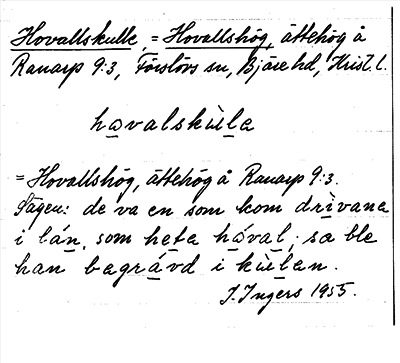 Hovallskulle, = Hovallshög, ättehög å
Ranarp 9:3, Förslövs sn, Bjäre hd, Krist. l.
havalskùla
= Hovallshög, ättehög å Ranarp 9:3.
Sägen: de va en som kom drìvana
i lán, som heta hával; sa ble
han begrávd i kùlan.
I. Ingers 1955.